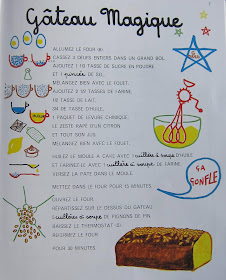 Gâteau Magique
ALLUMEZ LE FOUR (6).
CASSEZ 3 OEUFS ENTIERS DANS UN GRAND BOL.
AJOUTEZ 1 TASSE DE SUCRE EN POUDRE
ET 1 pincée DE SEL.
MÉLANGEZ BIEN AVEC LE FOUET.
AJOUTEZ 2 1/2 TASSES DE FARINE,
1/2 TASSE DE LAIT,
3/4 TASSE D'HUILE,
1 PAQUET DE LEVURE CHIMIQUE,
LE ZESTE RAPÉ D'UN CITRON
ET TOUT SON JUS.
MÉLANGEZ BIEN AVEC LE FOUET.
HUILEZ LE MOULE À CAKE AVEC 1 cuillère à soupe D'HUILE
ET FARINEZ-LE AVEC 1 cuillère à soupe DE FARINE.
VERSEZ LA PÂTE DANS LE MOULE.
METTEZ DANS LE FOUR POUR 15 MINUTES.
OUVREZ LE FOUR.
RÉPARTISSEZ SUR LE DESSUS DU GÂTEAU
cuillères à soupe DE PIGNONS DE PIN.
BAISSEZ LE THERMOSTAT
RALLUMEZ LE FOUR
POUR 30 MINUTES.
ÇA
GONFLE